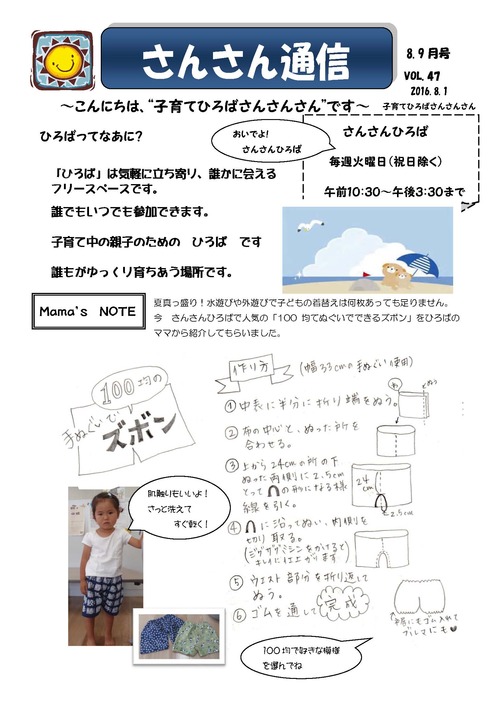 さんさん通信
8.9月号
VOL.47
2016.8.1
～こんにちは、“子育てひろばさんさんさん”です～
子育てひろばさんさんさん
ひろばってなあに？
おいでよ！
さんさんひろば
さんさんひろば
毎週火曜日（祝日除く）
午前10:30～午後3:30まで
「ひろば」は気軽に立ち寄り、誰かに会える
フリースペースです。
誰でもいつでも参加できます。
子育て中の親子のための　ひろば　です
誰もがゆっくり育ちあう場所です。
Mama's NOTE
夏真っ盛り！水遊びや外遊びで子どもの着替えは何枚あっても足りません。
今　さんさんひろばで人気の「100均てぬぐいでできるズボン」をひろばの
ママから紹介してもらいました。
100均の
手ぬぐいで
ズボン
作り方
（幅33cmの手ぬぐい使用）
①中表に半分に折り端をぬう。
わ
ぬう
②布の中心と、ぬった所を
合わせる。
③上から24cmの所の下
ぬった両側に2.5cm
とって∩の形になる様
線を引く。
24
cm
2.5cm
④∩に沿ってぬい、内側を
切り取る。
（ジグザグミシンをかけると
キレイに仕上がります
⑤ウエスト部分を折り返して
ぬう。
⑥ゴムを通して完成
にもゴム入れて
ブルマにも♥
肌触りもいいよ！
さっと洗えて
すぐ乾く！
100均で好きな模様
を選んでね